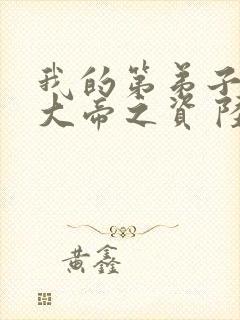 我的第弟子
大帝之资 陆
黄鑫